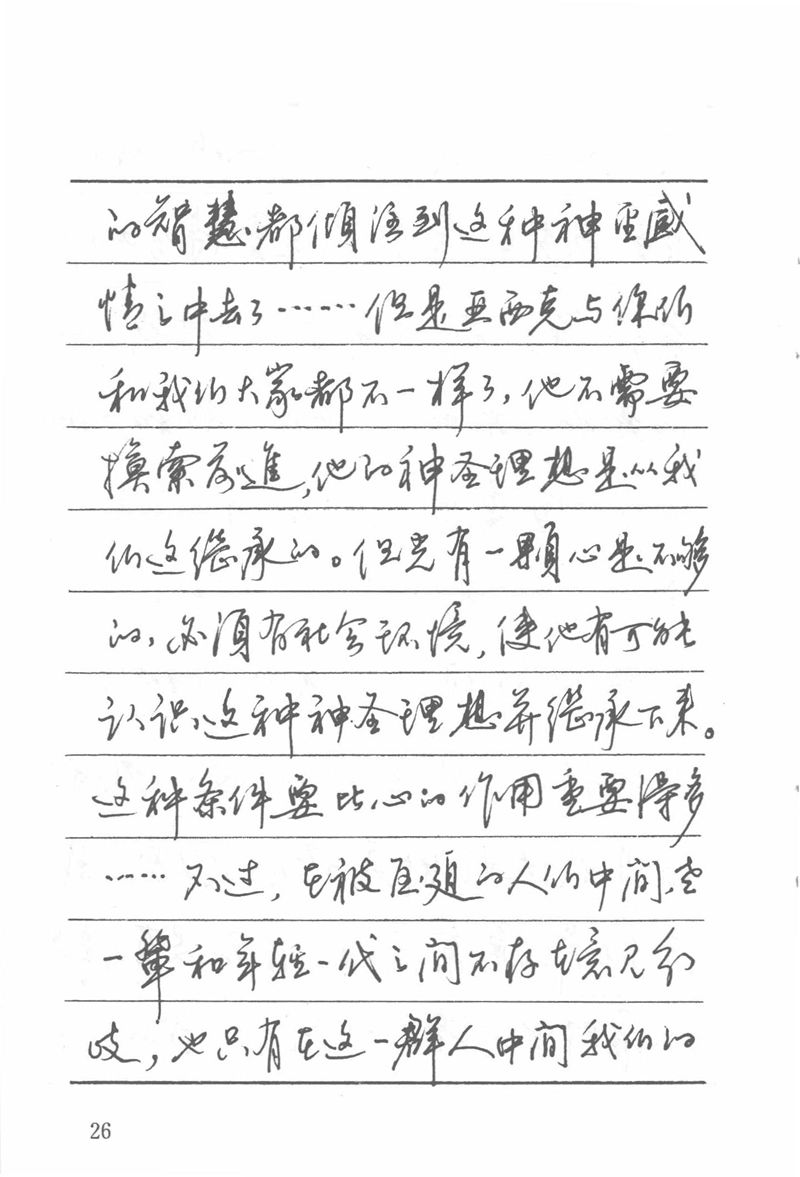 的智慧都倾注到这种神圣感
情之中去了……但是亚西克与保尔
和我们大家都不一样了,他不需要
摸索前進,他的神圣理想是从我
们这继承的。但光有一顆心是不够
的,必須有社会环境,使他有可能
认识这种神圣理想并继承下来。
这种条件要比心的作用重要得多
……不过,在被压迫的人们中间,老
一辈和年轻一代之间不存在意见分
歧,也只有在这一群人中间我们的
26